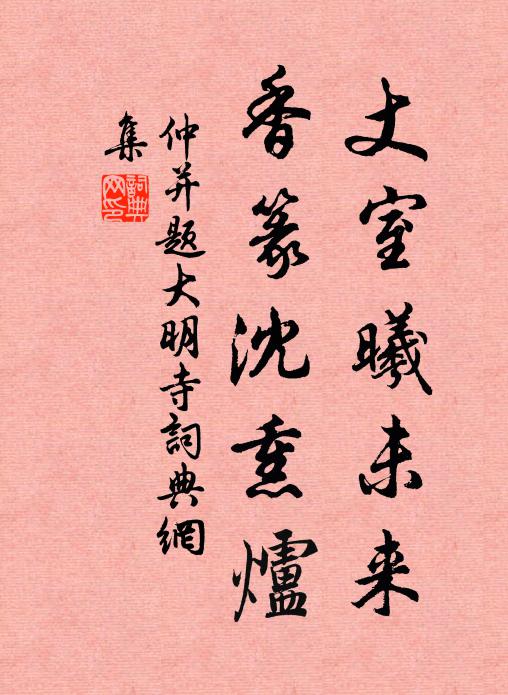 丈室曦未来
香篆沈熏爐
仲并题大明寺詞典網
集
詞典
网印